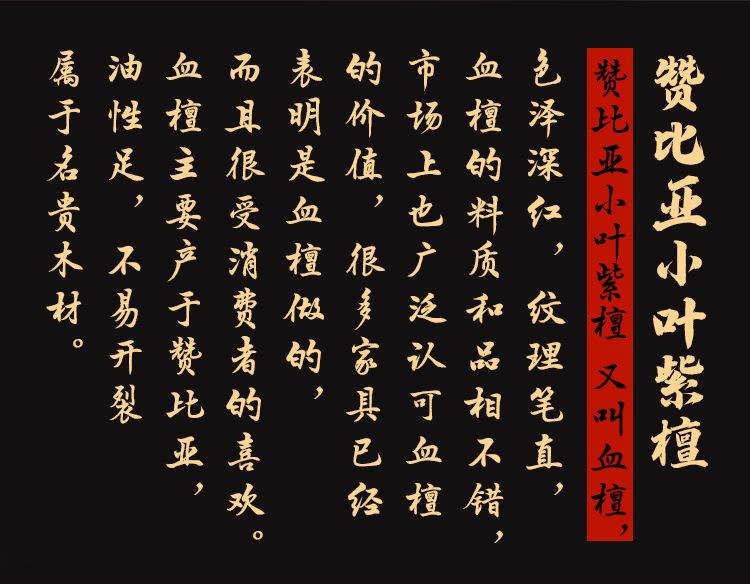 赞比亚小叶紫檀
赞比亚小叶紫檀 又叫血檀，
色泽深红，纹理笔直，
血檀的料质和品相不错，
市场上也广泛认可血檀
的价值，很多家具已经
表明是血檀做的，
而且很受消费者的喜欢。
血檀主要产于赞比亚，
油性足，不易开裂
属于名贵木材。